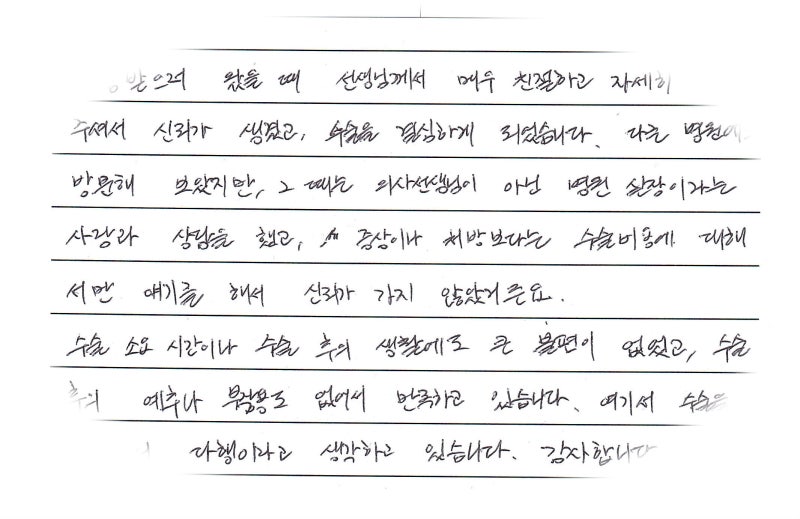 받으러 왔을 때 선생님께서 매우 친절하고 자세히
주셔서 신뢰가 생겼고, 수술을 결심하게 되었습니다. 다른 병원에
방문해 보았지만, 그 때는 의사선생님이 아닌 병원 실장이라는
사람과 상담을 했고, 증상이나 처방보다는 수술비용에 대해
서만 얘기를 해서 신뢰가 가지 않았거든요.
수술 소요 시간이나 수술 후의 생활에도 큰 불편이 없었고, 수술
후의 예후나 부작용도 없어서 만족하고 있습니다. 여기서 수술을
다행이라고 생각하고 있습니다. 감사합니다